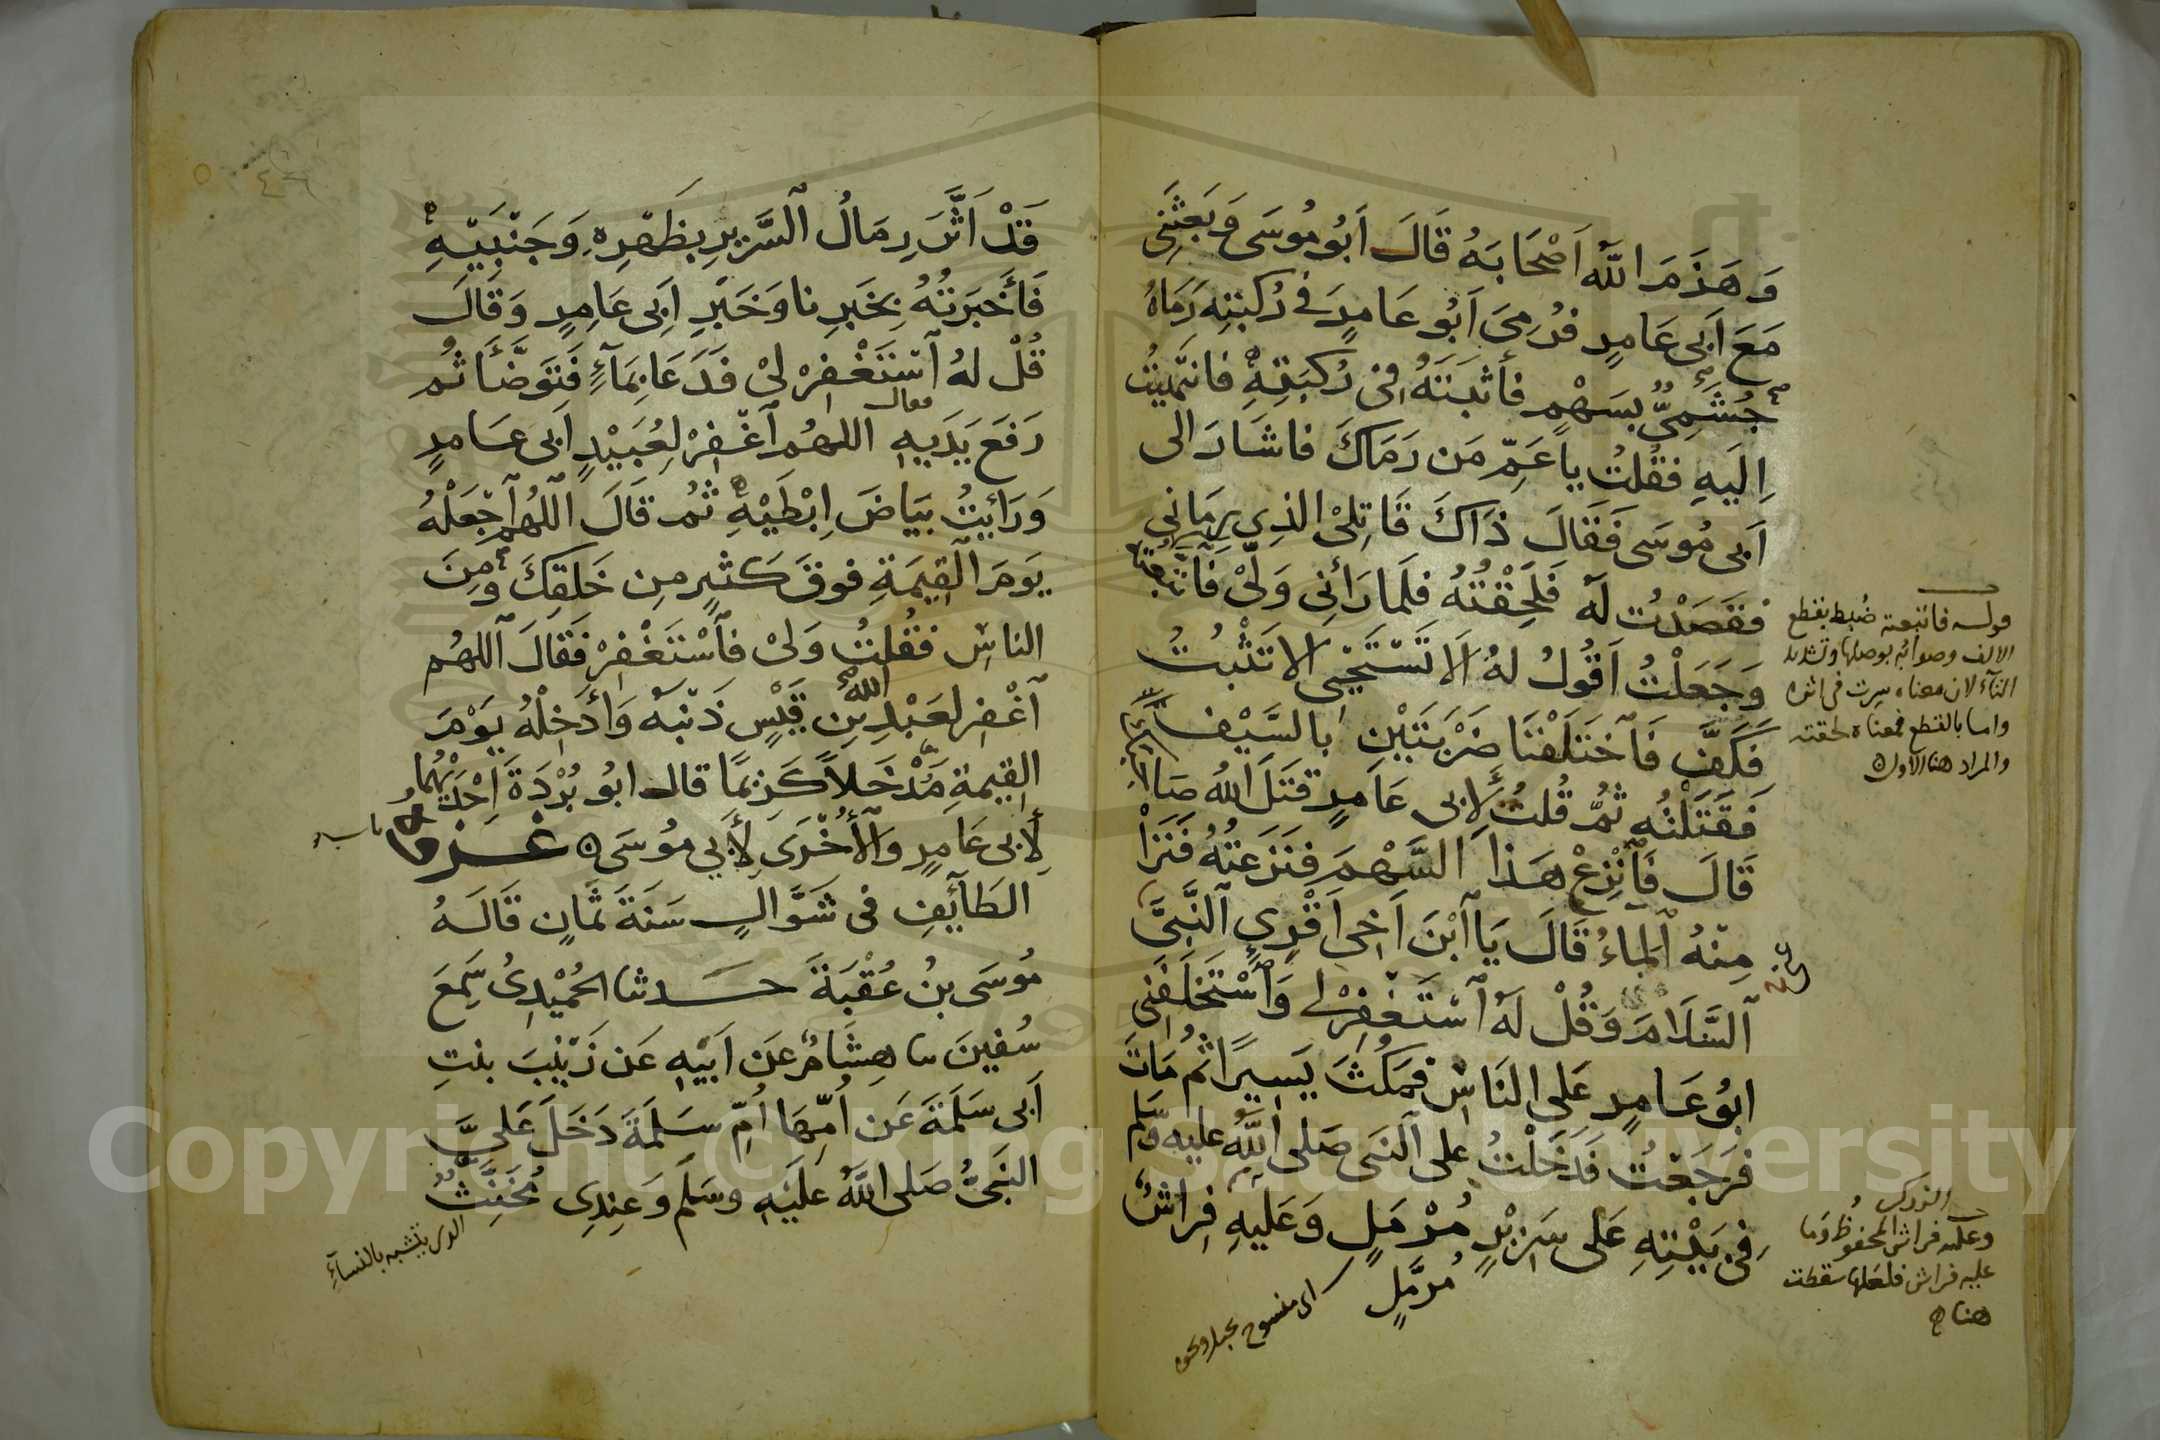 وَهَذَمَ اللَّه اَصْحَابَهُ قَالَ اَبُو مُوسَى وَبَعَثَنِى
مَعَ اَبِى عَامِرٍ فرُمِىَ اَبُو عَامِرٍ فى رُكبَتِهِ رَمَاهُ
جُشَمِىٌّ بسَهْمٍ فأثبَتَهُ فِى رُكبَتِهِ فانتَهَيْتُ
اِلَيهِ فقُلتُ يا عَمِّ مَن رَمَاكَ فاشَارَ الى
اَبِى مُوسَى فَقَالَ ذَاكَ قَاتِلِىْ الذِى رَمَانِى
فقَصَدْتُ لَهُ فَلَحِقْتُهُ فلَما رَاَنِى وَلّىْ فَاتَّبَعْتُهُ
وَجَعَلْتُ اَقُولُ لهُ اَلَا تَسْتَحْيِى اَلا تَثْبُتُ
فَكَفَّ فَاخْتَلَفْنَا ضَرْبَتَيْنِ بالسَّيْفِ
فَقَتَلْتُه ثُمَّ قُلتُ لِأَبِى عَامِرٍ قتَلَ اللهُ صَاحِبَكَ
قَالَ فَانْزِعْ هَذا السَّهْمَ فنَزَعتُهُ فَنَزَا
مِنْهُ المَاءُ قَالَ يَا ابْنَ اَخِى اَقْرِى النَّبِىَّ
السَّلَامَ وَقُلْ لَهُ اسْتَغْفِرْ لِى وَاسْتَخْلَفَنِى
ابُو عَامِرٍ عَلى النَاسِ فمَكُثَ يَسِيرًا ثُمَّ مَاتَ
فرَجَعْتُ فَدَخَلْتُ على النَبِى صَلى اللَّهُ عليهِ وسَلم
فِى بَيْتِهِ عَلَى سَرِيْرٍ مُرْمَلٍ وَعَلَيهِ فِرَاشٌ
مُرَمَّلٍ
اى منسوج بحبل ونحوه
قوله فاتبعته ضُبط بقطع
الالف وصوابُه بوصلها وتشديد
التآء لان معناه سِرت فى اثره
واما بالقطع فمعناه لحقته
والمراد هنا الاول
وعليه فراش المحفُوظ وَما
عليه فراش فلعلها سقطت
هنا
قَدْ اَثَّرَ رِمَالُ السَّرِيرِ بظَهْرِهِ وَجَنْبَيْهِ
فَأَخبَرتُهُ بِخَبَرِنا وَخَبَرِ اَبِى عَامِرٍ وَقَالَ
قُلْ لهُ اسْتَغْفِرْ لِىْ فَدَعَا بِمَآءٍ فَتَوَضَّأَ ثُم
رَفَعَ يَدَيهِ فقال اللهُم اغْفِرْ لِعُبَيْدٍ اَبِى عَامرٍ
وَرَايتُ بيَاضَ اِبْطَيْهِ ثُم قَالَ اللّهُم اجْعَلْهُ
يَومَ القِيمَةِ فوقَ كَثيرٍ مِن خَلقِكَ وَمِنَ
الناسِ فقُلتُ وَلىْ فاسْتَغْفِرْ فَقَالَ اللهُم
اغْفِر لعَبْدِ اللهِ بنِ قَيْسٍ ذَنبَهُ وَأدْخِلْهُ يَوْمَ
القِيمةِ مُدْخَلاً كَرِيمًا قال ابُو بُرْدَةَ اِحْدَيْهُمَا
لِأَبِى عَامِرٍ وَالأُخْرَى لِأَبِي مُوسَى غَزوة
الطَآئِفِ فى شَوَّالٍ سَنَةَ ثَمانٍ قَالَهُ
مُوسَى بنُ عُقْبَةَ حدثنا الحُمَيْدِىُ سَمِعَ
سُفينَ ثنا هِشَامٌ عَن اَبِيْهِ عَن زَيْنَبَ بنتِ
اَبِى سَلَمَةَ عَن اُمّهَا اُمِّ سَلَمَةَ دَخَلَ عَلَىَّ
النَبِىُّ صَلى اللَّهُ علَيْهِ وسَلَّم وَعِندِى مُخَنَّثٌ
الذى يتشبه بالنسآءِ
Copyright © King Saud University